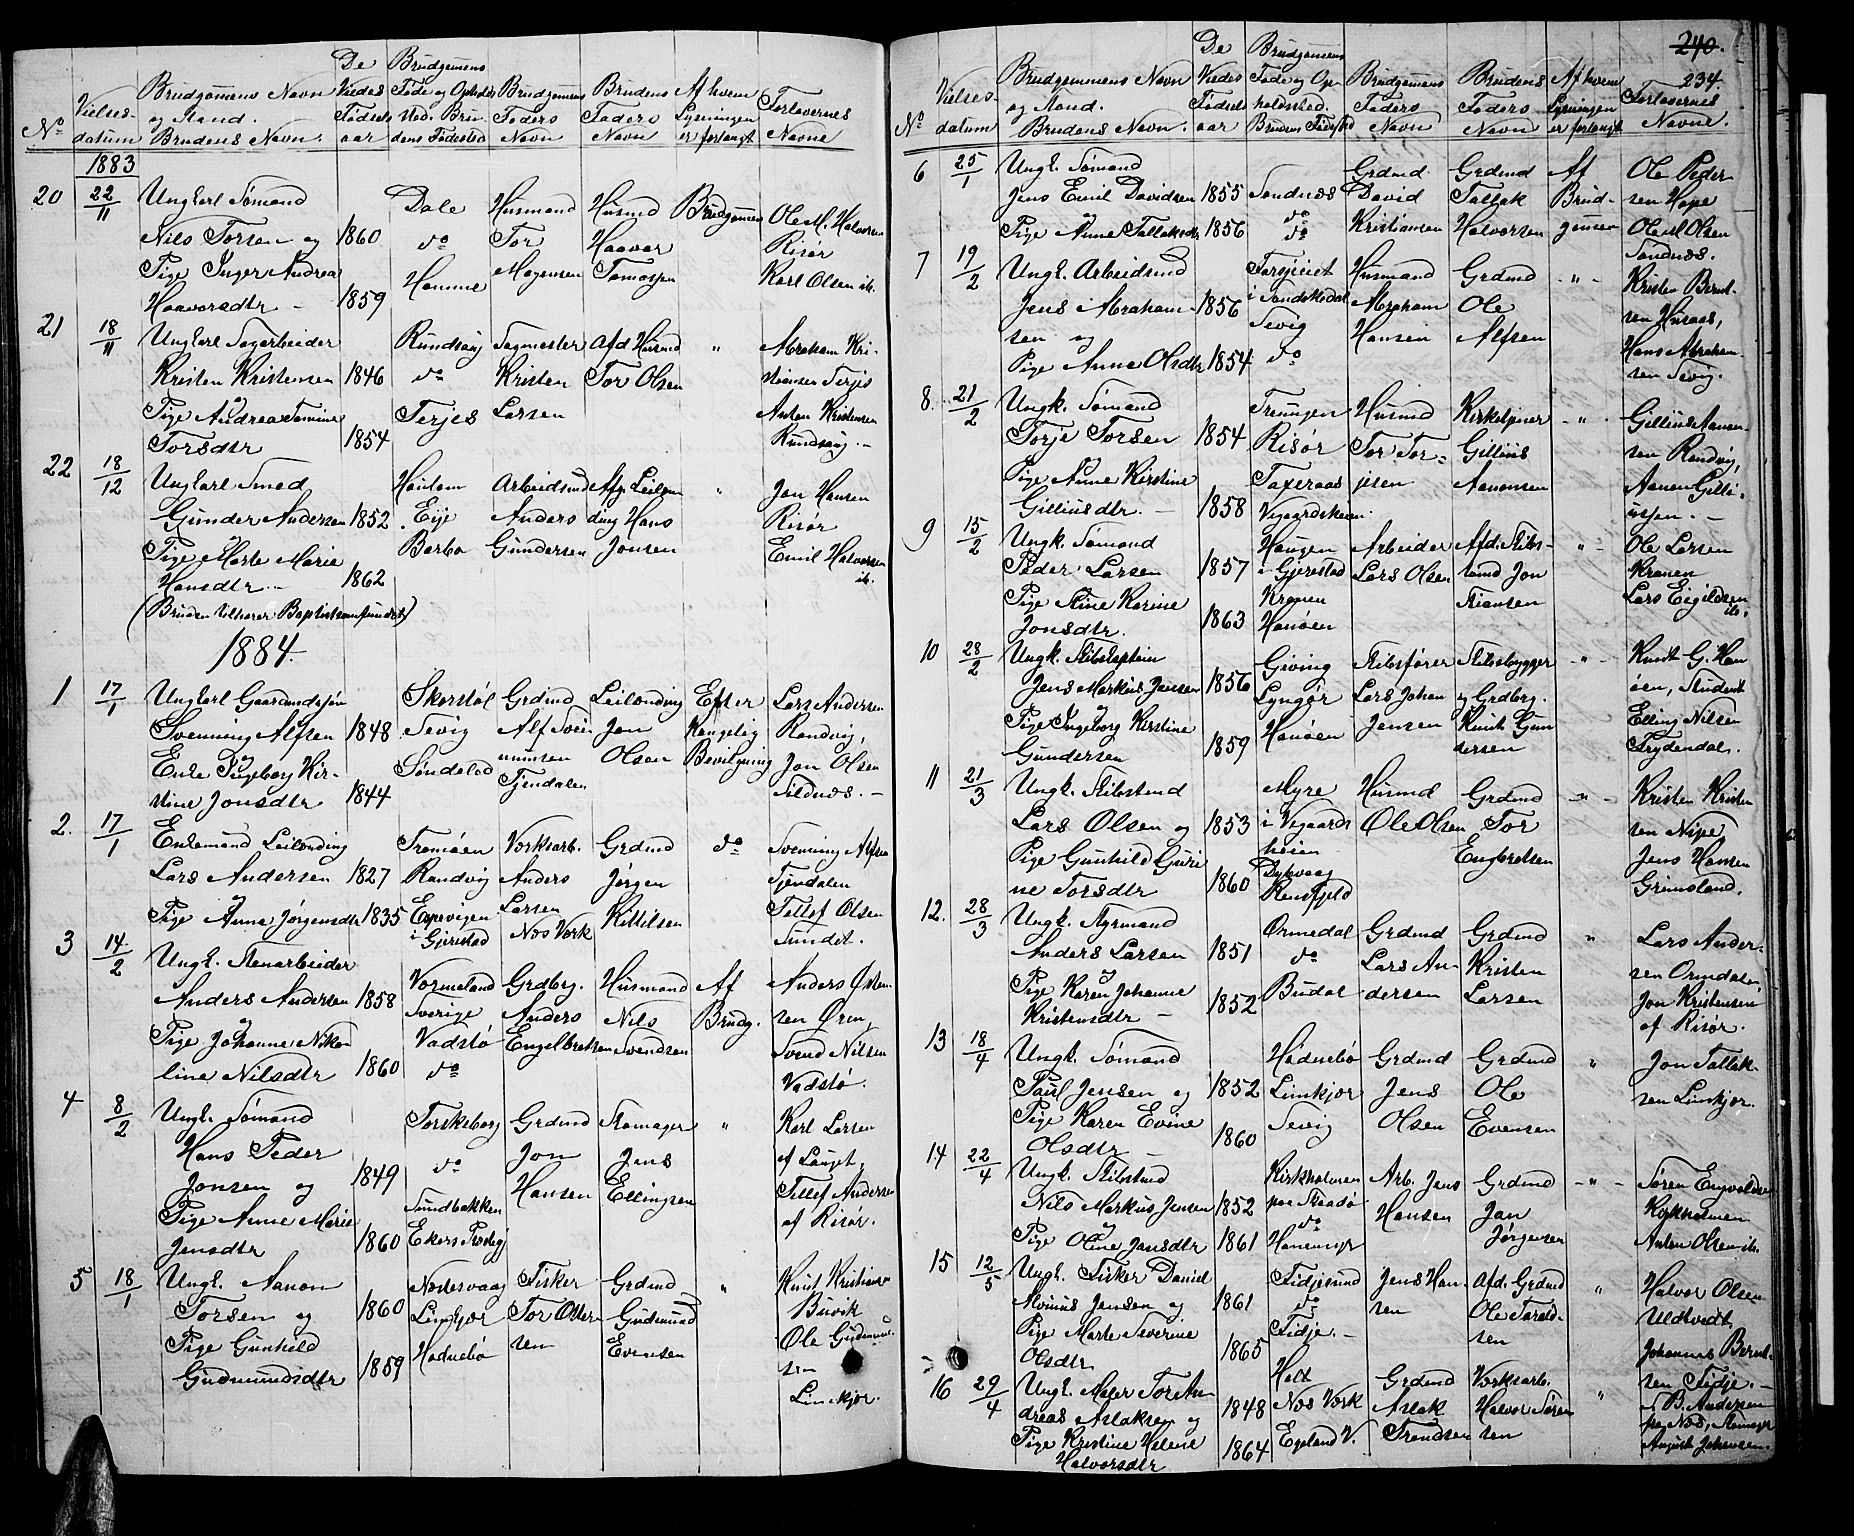 240.
234.
No
Vielses-
datum
Brudgomens Navn
og Stand.
Brudens Navn.
De
Viedes
Fødsels
aar
Brudgomens
Føde og Opholds
Sted. Bru-
dens Fødested
Brudgomens
Faders
Navn
Brudens
Faders
Navn
Af hvem
Lysningen
er forlangt
Forlovernes
Navne
1883
20 22/11 Ungkarl Sømand
Nils Torsen og 1860
Pige Inger Andrea
Haavorsdtr - 1859
Dale
do
Hamme
Husmand
Tor
Mogensen
Husmd
Haavor
Tomassen
Brudgomen
Ole M. Halvorsen
Risør
Karl Olsen ib.
21 18/11 Ungkarl Sagarbeider
Kristen Kristensen 1846
Pige Andrea Tomine
Torsdtr 1854
Rundsag
do
Terjes
Sagmester
Kristen
Larsen
Afd Husmd
Tor Olsen
"
Abraham Kri-
stensen Terjes
Anton Kristensen
Rundsag. -
22 18/12 Ungkarl Smed
Gunder Andersen 1852
Pige Marte Marie
Hansdtr - 1862
(Bruden tilhører Baptistsamfundet)
Eije
Barbo
Arbeidsmd
Anders
Gundersen
Hans
Jonsen
"
Jon Hansen
Risør
Emil Halvorsen
ib.
1884.
1 17/1 Ungkarl Gaardmdssøn
Svenning Alfsen 1848
Enke Ingeborg Kir-
stine Jonsdtr 1844
Skorstøl
Sevig
Søndeled
Grdmd
Alf Sven
numsen
Tjendalen
Leilænding
Jon
Olsen
Efter
Kongelig
Bevilgning
Lars Andersen
Randvig,
Jon Olsen
Sildnæs. -
2. 17/1 Enkemand Leilænding
Lars Andersen 1827
Pige Anna Jørgensdtr 1835
Tromøen
Randvig
Espevigen
i Gjerestad
Verksarb.
Anders
Larsen
Næs Værk
Grdmd
Jørgen
Kittilsen
do
Svenning Alfsen
Tjendalen
Tellef Olsen
Sundet.
3 14/2 Ungk. Stenarbeider
Anders Andersen 1858
Pige Johanne Niko
line Nilsdtr 1860
Vermeland
Sverige
Vadstø
do
Grdbrg.
Anders
Engelbretsen
Husmand
Nils
Svendsen
Af
Brudg.
Anders Osten
sen Øren,
Svend Nilsen
Vadstø.
4 8/2 Ungk. Sømand
Hans Peder
Jonsen og 1849
Pige Anne Marie
Jensdtr 1860
Torskeberg
do
Sundbakken
Grdmd
Jon
Hansen
Skomager
Jens
Ellingsen
"
Karl Larsen
af Lauget,
Tellef Andersen
af Risør.
5 18/1 Ungk. Aanon
Torsen og 1860
Pige Gunhild
Gudmundsdtr 1859
Nordesvaag
Limkjær
Hødnebø
Fisker
Tor Osten
sen
Grdmd
Gudmund
Evensen
"
Knut Kristiansen
Buvik
Ole Gudmund-
sen
Limkjær.
No
Vielses-
datum
Brudgommens Navn
og Stand.
Brudens Navn.
De
Viedes
Fødsels
aar
Brudgomens
Føde og Op-
holdssted.
Brudens Fødested
Brudgomens
Faders
Navn
Brudens
Faders
Navn
Af hvem
Lysningen
er forlangt
Forlovernes
Navne.
6 25/1 Ungk. Sømand
Jens Emil Davidsen 1855
Pige Anne Tallaksdtr 1856
Sandnæs
do
Grdmd.
David
Kristiansen
Grdmd
Tallak
Halvorsen
Af
Brud-
gomen
Ole Peder
sen Hope
Ole Olsen
Sandnæs.
7 19/2 Ungk. Arbeidsmd
Jens Abraham- 1856
sen og
Pige Anna Olsdtr 1854
i Sandøkedal
Sevig
do
Husmand
Abraham
Hansen
Grdmd
Ole
Alfsen
- " -
Kristen Bernt-
sen Husaas,
Hans Abraham-
sen Sevig.
8. 21/2 Ungk. Sømand
Torje Torsen 1854
Pige Anne Kirstine
Gilliusdtr. - 1858
Treungen
Risør
Taxeraas
Vegaardsheien
Husmd
Tor Tor-
jesen
Kirketjener
Gillius
Aanonsen
- " -
Gillius Aanon-
sen Randvig,
Aanon Gilli-
ussen. -
9 15/2 Ungk. Sømand
Peder Larsen 1857
Pige Stine Karine
Jonsdtr. 1863
Haugen
i Gjerestad
Kranen
Hanøen
Arbeider
Lars Olsen
Afd. Skibs-
tømd Jon
Stiansen
- " -
Ole Larsen
Kranen
Lars Eigilsen
ib.
10 28/2 Ungk. Skibskaptein
Jens Markus Jensen 1856
Pige Ingeborg Kirstine
Gundersen 1859
Giving
Lyngør
Hanøen
Skibsfører
Lars Johan
Jensen
Skibsbygger
og Grdbrg.
Knut Gun
dersen
- " -
Knut G. Han
øen, Student
Elling Nilsen
Frydendal.
11 21/3 Ungk. Skibstmd
Lars Olsen og 1853
Pige Gunhild Guri
ne Torsdtr 1860
Myre
i Vegaards
heien
Dybvaag
Husmd
Ole Olsen
Grdmd
Tor
Engbretsen
- " -
Kristen Kristen
sen Nipe
Jens Hansen
Grimsland.
12. 28/3 Ungk. Styrmand
Anders Larsen 1851
Pige Karen Johanne
Kristensdtr - 1852
Ormedal
do
Budal
Grdmd
Lars An
dersen
Grdmd
Kristen
Larsen
"
Lars Ander-
sen Ormdalen,
Jon Kristensen
af Risør.
13 18/4 Ungk. Sømand
Paul Jensen og 1852
Pige Karen Evine
Olsdtr - 1860
Hødnebø
Limkjær
Sevig
Grdmd
Jens
Olsen
Grdmd
Ole
Evensen
"
Jon Tallak-
sen Limkjær.
14 22/4 Ungk. Skibstmd
Nils Markus Jensen 1852
Pige Oline Jansdtr 1861
Kirkholmen
paa Skaadø
do
Arb. Jens
Hansen
Grdmd
Jan
Jørgensen
- " -
Søren Engvoldsen
Kirkholmen
Anton Olsen ib.
15 12/5 Ungk. Fisker Daniel
Alvinus Jensen og 1861
Pige Marte Severine
Olsdtr 1865
Fidjesund
do
Fidje. -
Jens Han-
sen
Afd. Grdmd
Ole Tarald-
sen
"
Halvor Olsen
Uldtvedt,
Johannes Bernt-
sen Fidje. -
16 29/4 Ungk. Maler Tor An-
dreas Aslaksen og 1848
Pige Kristine Helene
Halvorsdtr 1864
Holt
Næs Værk
Egeland V.
Grdmd
Aslak
Trondsen
Værksarb.
Halvor Søren
sen
"
N. B. Andersen
paa Næs, Skomager
August Johansen. -